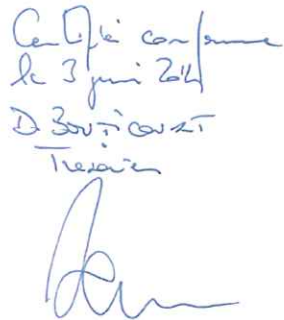 Certifié conforme
le 3 juin 2014
D. BOUTICOURT
Trésorier